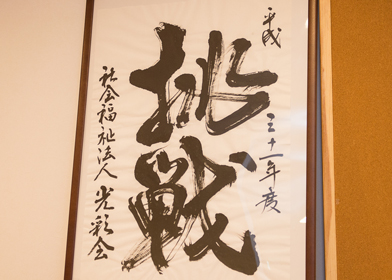 平成三十一年度
挑戦
社会福祉法人 光彩会